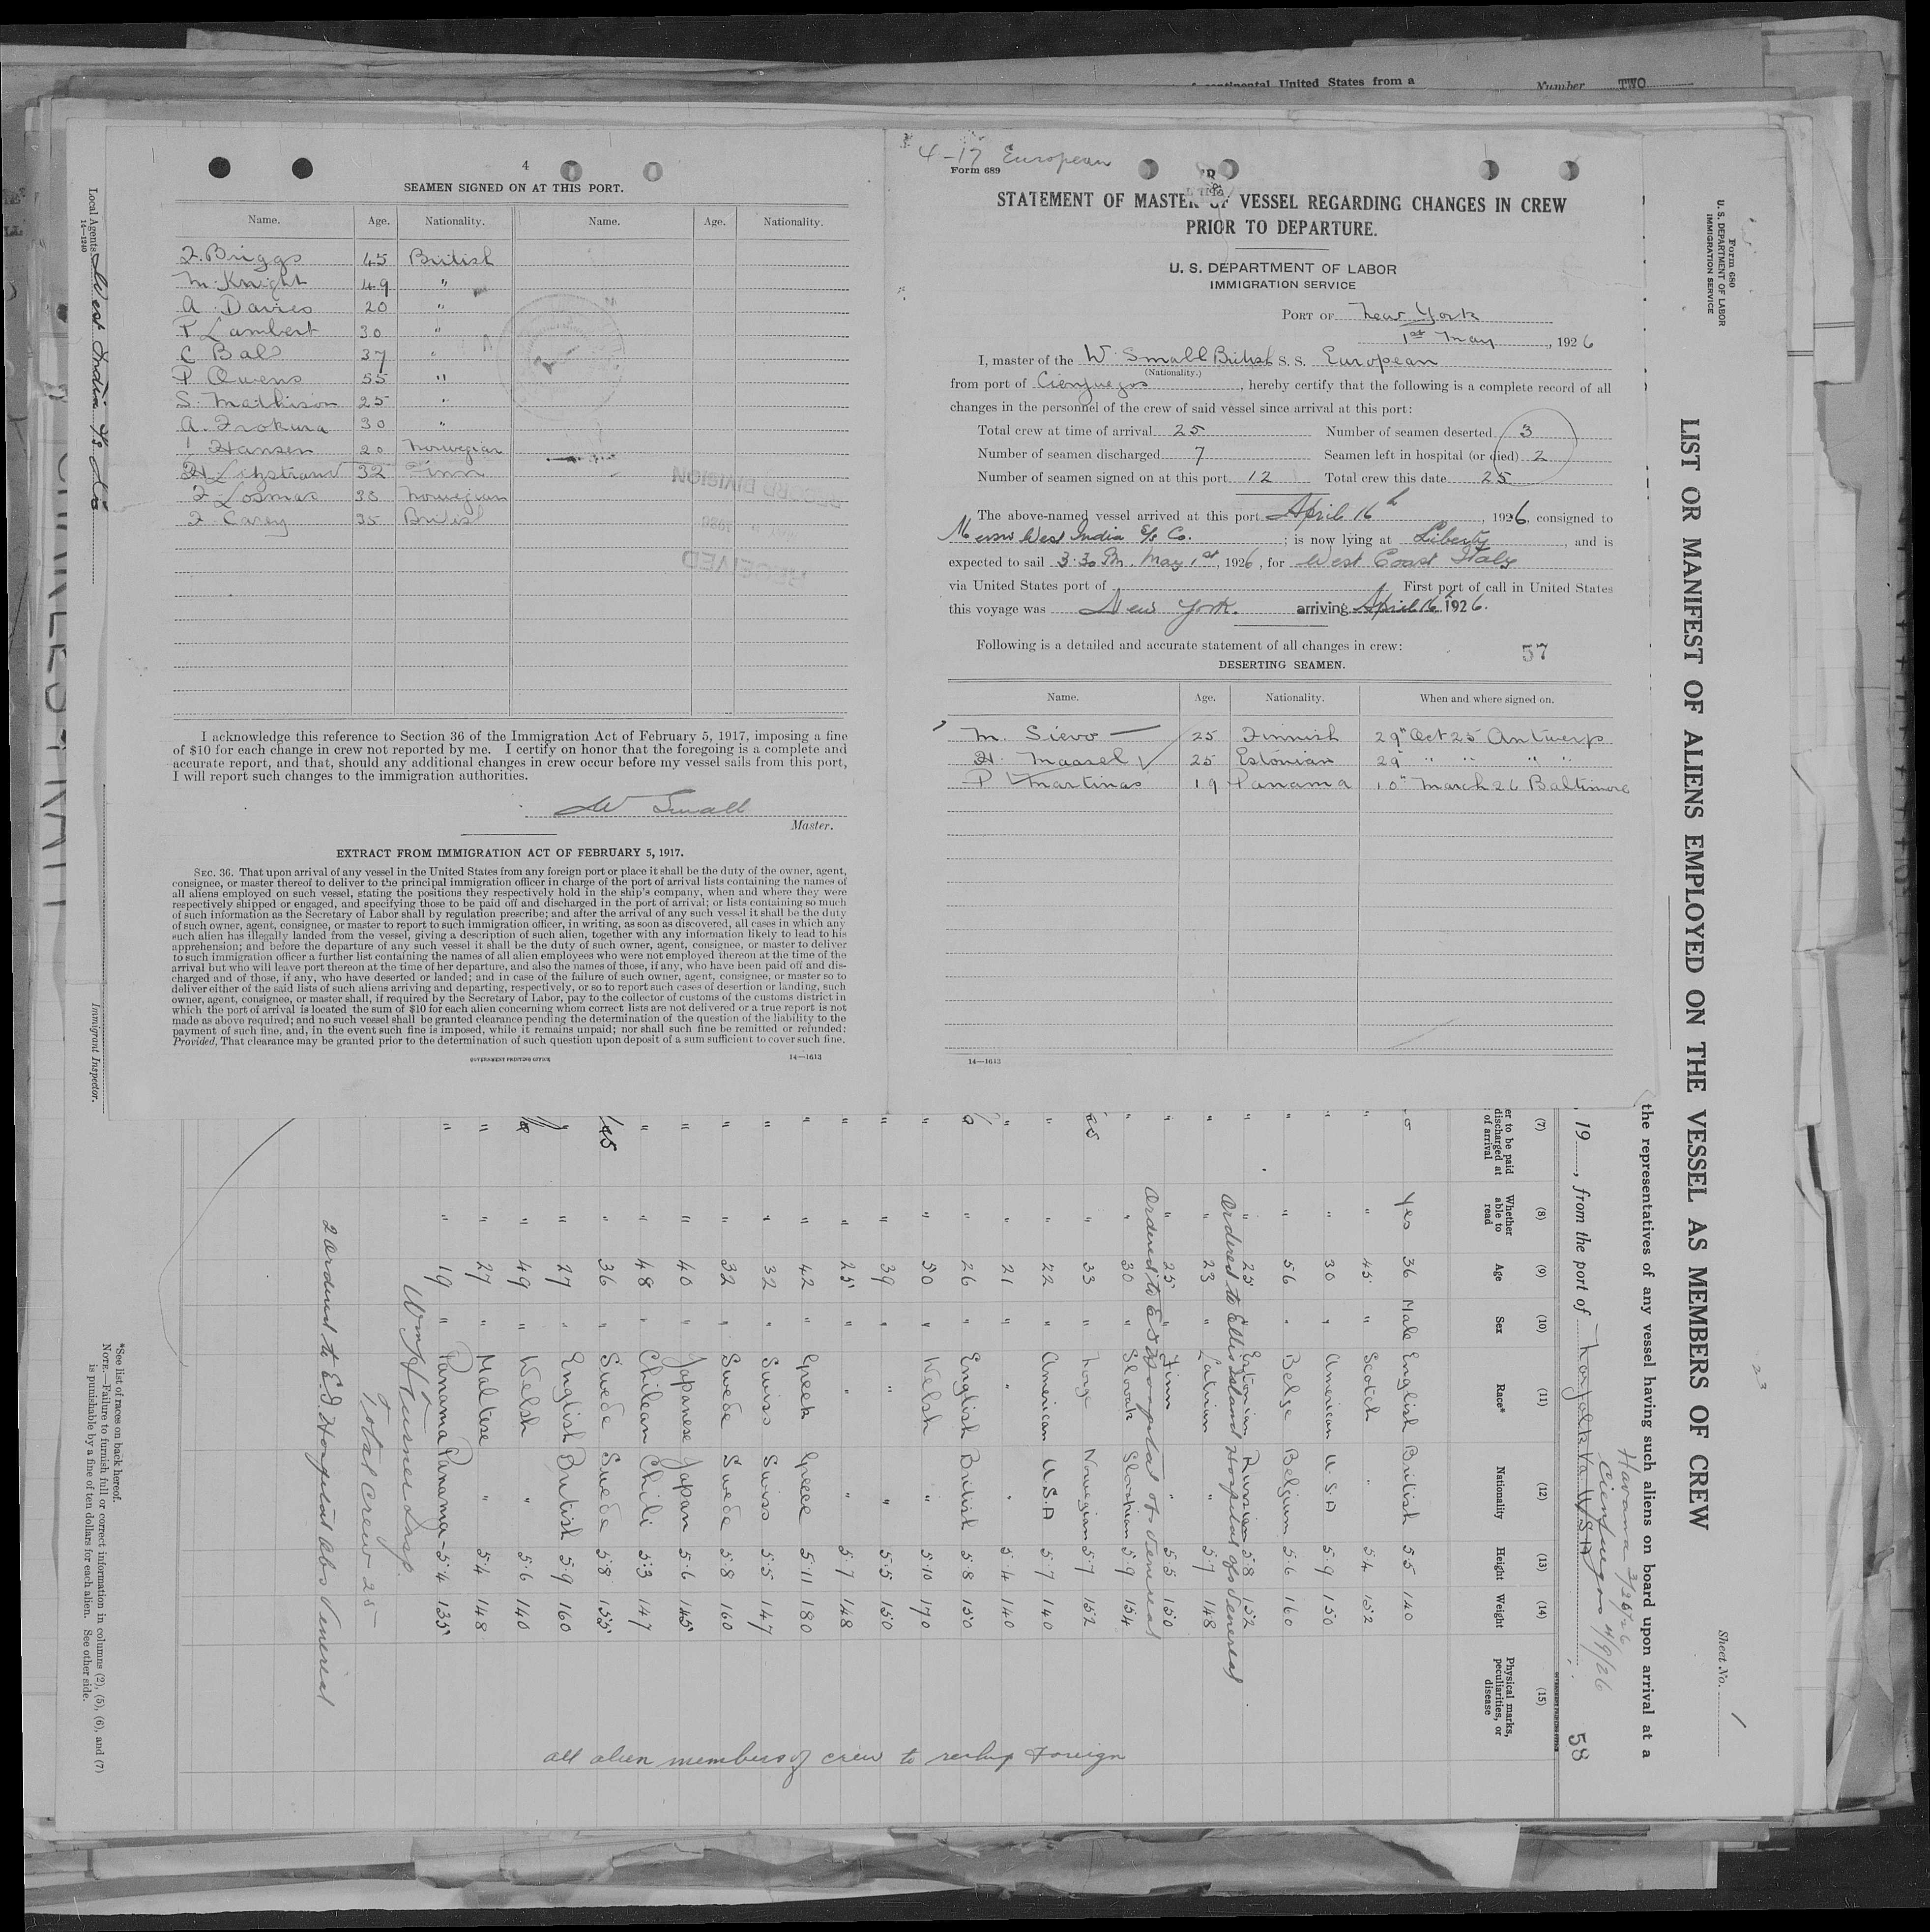 continental United States from a
Number TWO
4
SEAMEN SIGNED ON AT THIS PORT.
Name. Age. Nationality. Name. Age. Nationality.
F. Briggs 45 British
M. Knight 49 "
A Davies 20 "
P Lambert 30 "
C Bal 37 "
P Owens 55 "
S. Mathison 25 "
A. 30 "
Hansen 20 Norwegian
32 Finn
Losmas Norwegian
F Carey 35 British
RECORD DIVISION
RECEIVED
I acknowledge this reference to Section 36 of the Immigration Act of February 5, 1917, imposing a fine
of $10 for each change in crew not reported by me. I certify on honor that the foregoing is a complete and
accurate report, and that, should any additional changes in crew occur before my vessel sails from this port,
I will report such changes to the immigration authorities.
W Small
Master.
EXTRACT FROM IMMIGRATION ACT OF FEBRUARY 5, 1917.
SEC. 36. That upon arrival of any vessel in the United States from any foreign port or place it shall be the duty of the owner, agent,
consignee, or master thereof to deliver to the principal immigration officer in charge of the port of arrival lists containing the names of
all aliens employed on such vessel, stating the positions they respectively hold in the ship's company, when and where they were
respectively shipped or engaged, and specifying those to be paid off and discharged in the port of arrival; or lists containing so much
of such information as the Secretary of Labor shall by regulation prescribe; and after the arrival of any such vessel it shall be the duty
of such owner, agent, consignee, or master to report to such immigration officer, in writing, as soon as discovered, all cases in which any
such alien has illegally landed from the vessel, giving a description of such alien, together with any information likely to lead to his
apprehension; and before the departure of any such vessel it shall be the duty of such owner, agent, consignee, or master to deliver
to such immigration officer a further list containing the names of all alien employees who were not employed thereon at the time of the
arrival but who will leave port thereon at the time of her departure, and also the names of those, if any, who have been paid off and dis-
charged and of those, if any, who have deserted or landed; and in case of the failure of such owner, agent, consignee, or master so to
deliver either of the said lists of such aliens arriving and departing, respectively, or so to report such cases of desertion or landing, such
owner, agent, consignee, or master shall, if required by the Secretary of Labor, pay to the collector of customs of the customs district in
which the port of arrival is located the sum of $10 for each alien concerning whom correct lists are not delivered or a true report is not
made as above required; and no such vessel shall be granted clearance pending the determination of the question of the liability to the
payment of such fine, and, in the event such fine is imposed, while it remains unpaid; nor shall such fine be remitted or refunded:
Provided, That clearance may be granted prior to the determination of such question upon deposit of a sum sufficient to cover such fine.
GOVERNMENT PRINTING OFFICE 14—1613
4-17 European
Form 689
STATEMENT OF MASTER OF VESSEL REGARDING CHANGES IN CREW
PRIOR TO DEPARTURE.
U. S. DEPARTMENT OF LABOR
IMMIGRATION SERVICE
PORT OF New York
1st May, 1926
I, master of the W. Small British S. S. European
(Nationality.)
from port of Cienfuegos, hereby certify that the following is a complete record of all
changes in the personnel of the crew of said vessel since arrival at this port:
Total crew at time of arrival 25 Number of seamen deserted 3
Number of seamen discharged 7 Seamen left in hospital (or died) 2
Number of seamen signed on at this port 12 Total crew this date 25
The above-named vessel arrived at this port April 16th, 1926, consigned to
Messrs West India S/S Co. ; is now lying at Liberty, and is
expected to sail 3.30 Pm. May 1st, 1926, for West Coast Italy
via United States port of First port of call in United States
this voyage was New York. arriving April 16 1926.
Following is a detailed and accurate statement of all changes in crew:
57
DESERTING SEAMEN.
Name. Age. Nationality. When and where signed on.
M. Sievo 25 Finnish 29" Oct 25 Antwerp
H. Maasel 25 Estonian 29 " " " "
P Martinas 19 Panama 10" March 26 Baltimore
14—1613
Form 680
U. S. DEPARTMENT OF LABOR
IMMIGRATION SERVICE
LIST OR MANIFEST OF ALIENS EMPLOYED ON THE VESSEL AS MEMBERS OF CREW
Sheet No. 1
the representatives of any vessel having such aliens on board upon arrival at a
Havana 3/26/26
Cienfuegos 4/9/26
, 19 , from the port of Norfolk Va. U.S.A.
58
(7) (8) (9) (10) (11) (12) (13) (14) (15)
er to be paid discharged at of arrival Whether able to read Age Sex Race* Nationality Height Weight Physical marks, peculiarities, or disease
Yes 36 Male English British 5 5 140
" " 45 " Scotch " 5 4 152
" " 30 " American U.S.A 5 9 150
" " 56 " Belge Belgium 5.6 160
" " 25 " Estonian Russian 5.8 152
Ordered to Ellis Island Hospital Venereal
" " 23 " " 5.7 148
" " 25 " Finn " 5 5 150
Ordered to Hospital Venereal
" " 30 " Slovak 5.9 154
" 33 " Norge Norwegian 5.7 152
" " 22 " American U.S.A 5.7 140
" " 21 " " " 5.4 140
" 26 " English British 5.8 150
" " 50 " Welsh " 5.10 170
" " 39 " " " 5.5 150
" " 25 " " " 5.7 148
" " 42 " Greek Greece 5.11 180
" " 32 " Swiss Swiss 5.5 147
" " 32 " Swede Swede 5.8 160
" " 40 " Japanese Japan 5.6 145
" " 48 " Chilean Chili 5.3 147
Yes " 36 " Swede Swede 5.8 155
" " 27 " English British 5.9 160
" 49 " Welsh " 5.6 140
" " 27 " Maltese " 5.4 148
" " 19 " Panama Panama 5.4 135
Wm H Turner Insp.
Total crew 25
2 ordered to E.I. Hospital Obs Venereal
all alien members of crew to reship Foreign
*See list of races on back hereof.
NOTE.—Failure to furnish full or correct information in columns (2), (5), (6), and (7)
is punishable by a fine of ten dollars for each alien. See other side.
Local Agents West India S/S Co
14—1240
Immigrant Inspector.